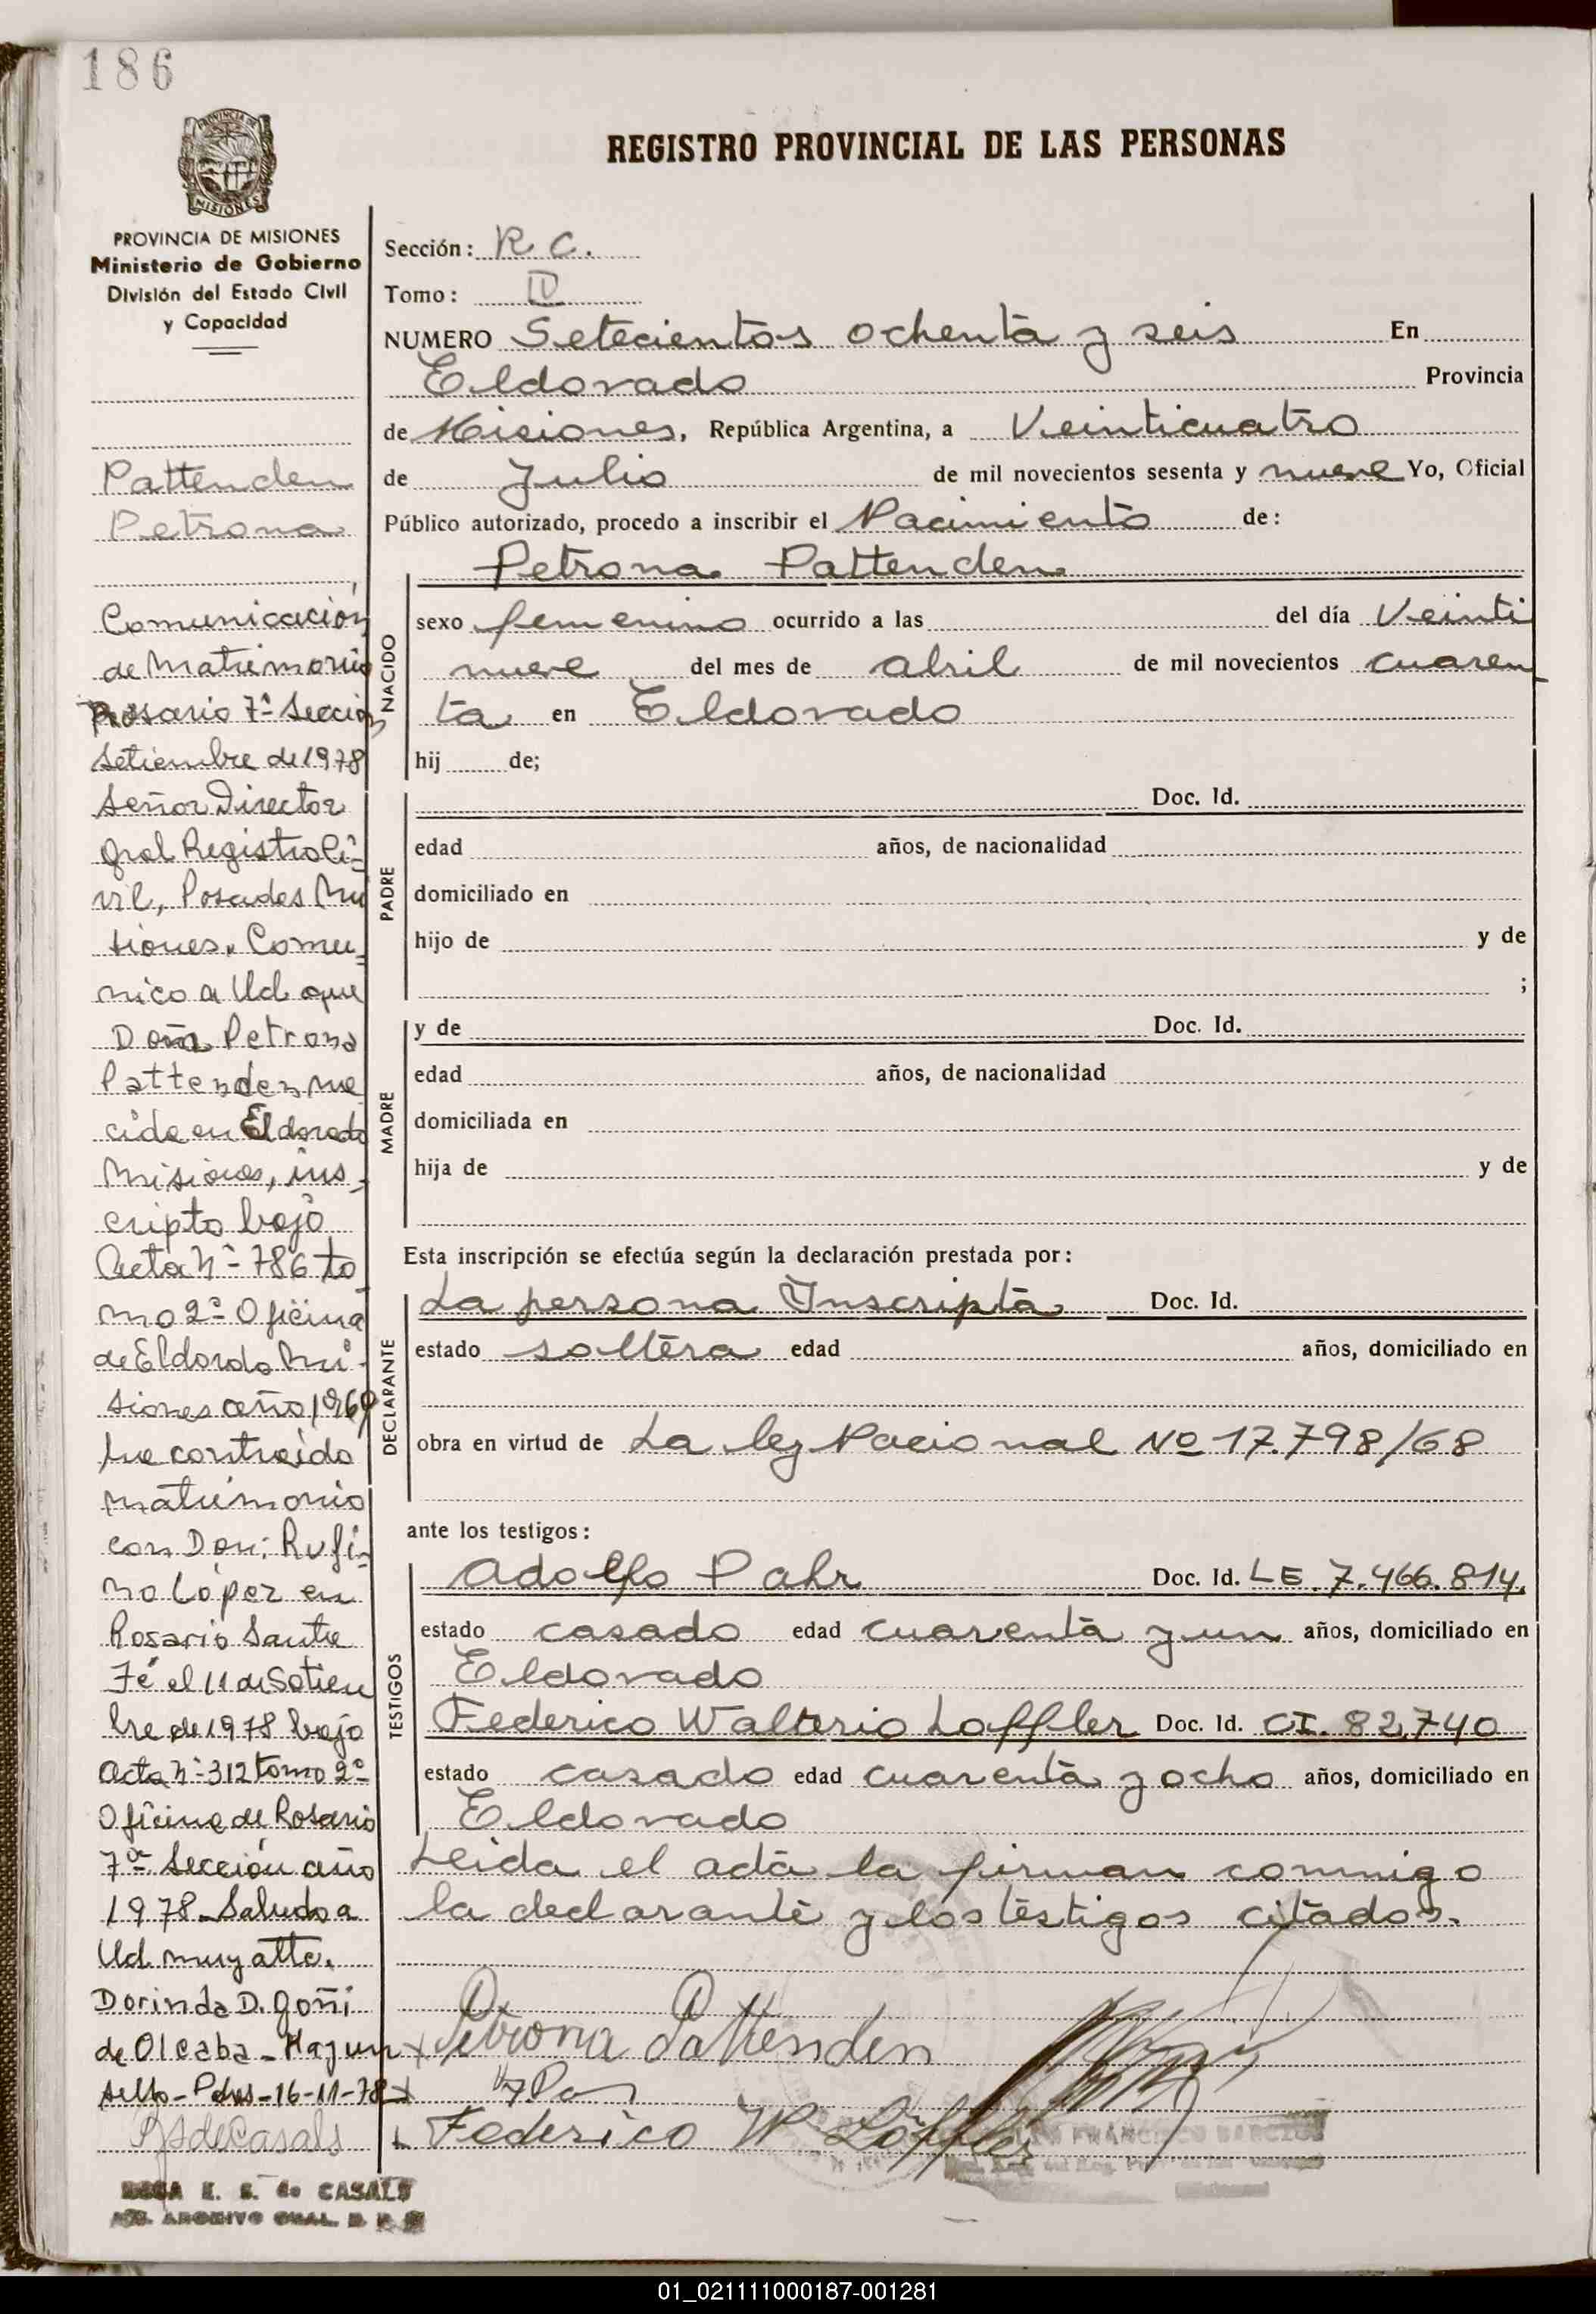 186
PROVINCIA DE
MISIONES
PROVINCIA DE MISIONES
Ministerio de Gobierno
División del Estado Civil
y Capacidad
Pattenden
Petrona
Comunicación
de Matrimonio
Rosario 7ª Sección
Setiembre de 1978
Señor Director
Gral Registro Ci=
vil, Posadas Mi
siones. Comu=
nico a Ud que
Doña Petrona
Pattenden na
cida en Eldorado
Misiones, ins-
cripto bajo
Acta Nº 786 to
mo 2º Oficina
de Eldorado Mi-
siones año 1969
ha contraído
matrimonio
con Don: Rufi=
no López en
Rosario Santa
Fé el 11 de Setiem
bre de 1978 bajo
Acta Nº 312 tomo 2º
Oficina de Rosario
7ª Sección año
1978. Saludo a
Ud muy atte.
Dorinda D. Goñi
de Olcaba - Hay un
sello - Pdas - 16-11-78
RSdeCasals
ROSA E. S. de CASALS
ARCHIVO GRAL.
REGISTRO PROVINCIAL DE LAS PERSONAS
Sección: R. C.
Tomo: IV
NUMERO Setecientos ochenta y seis En
Eldorado Provincia
de Misiones, República Argentina, a Veinticuatro
de Julio de mil novecientos sesenta y nueve Yo, Oficial
Público autorizado, procedo a inscribir el Nacimiento de:
Petrona Pattenden
NACIDO
sexo femenino ocurrido a las del día Veinti
nueve del mes de abril de mil novecientos cuaren
ta en Eldorado
hij de;
PADRE
Doc. Id.
edad años, de nacionalidad
domiciliado en
hijo de y de
;
MADRE
y de Doc. Id.
edad años, de nacionalidad
domiciliada en
hija de y de
Esta inscripción se efectúa según la declaración prestada por:
DECLARANTE
La persona Inscripta Doc. Id.
estado soltera edad años, domiciliado en
obra en virtud de La ley Nacional Nº 17.798/68
ante los testigos:
TESTIGOS
Adolfo Pahr Doc. Id. LE. 7.466.814.
estado casado edad cuarenta y un años, domiciliado en
Eldorado
Federico Walterio Loffler Doc. Id. CI. 82,740
estado casado edad cuarenta y ocho años, domiciliado en
Eldorado
Leida el acta la firman conmigo
la declarante y los testigos citados.
Petrona Pattenden
Federico W Löffler
FRANCISCO
01_021111000187-001281